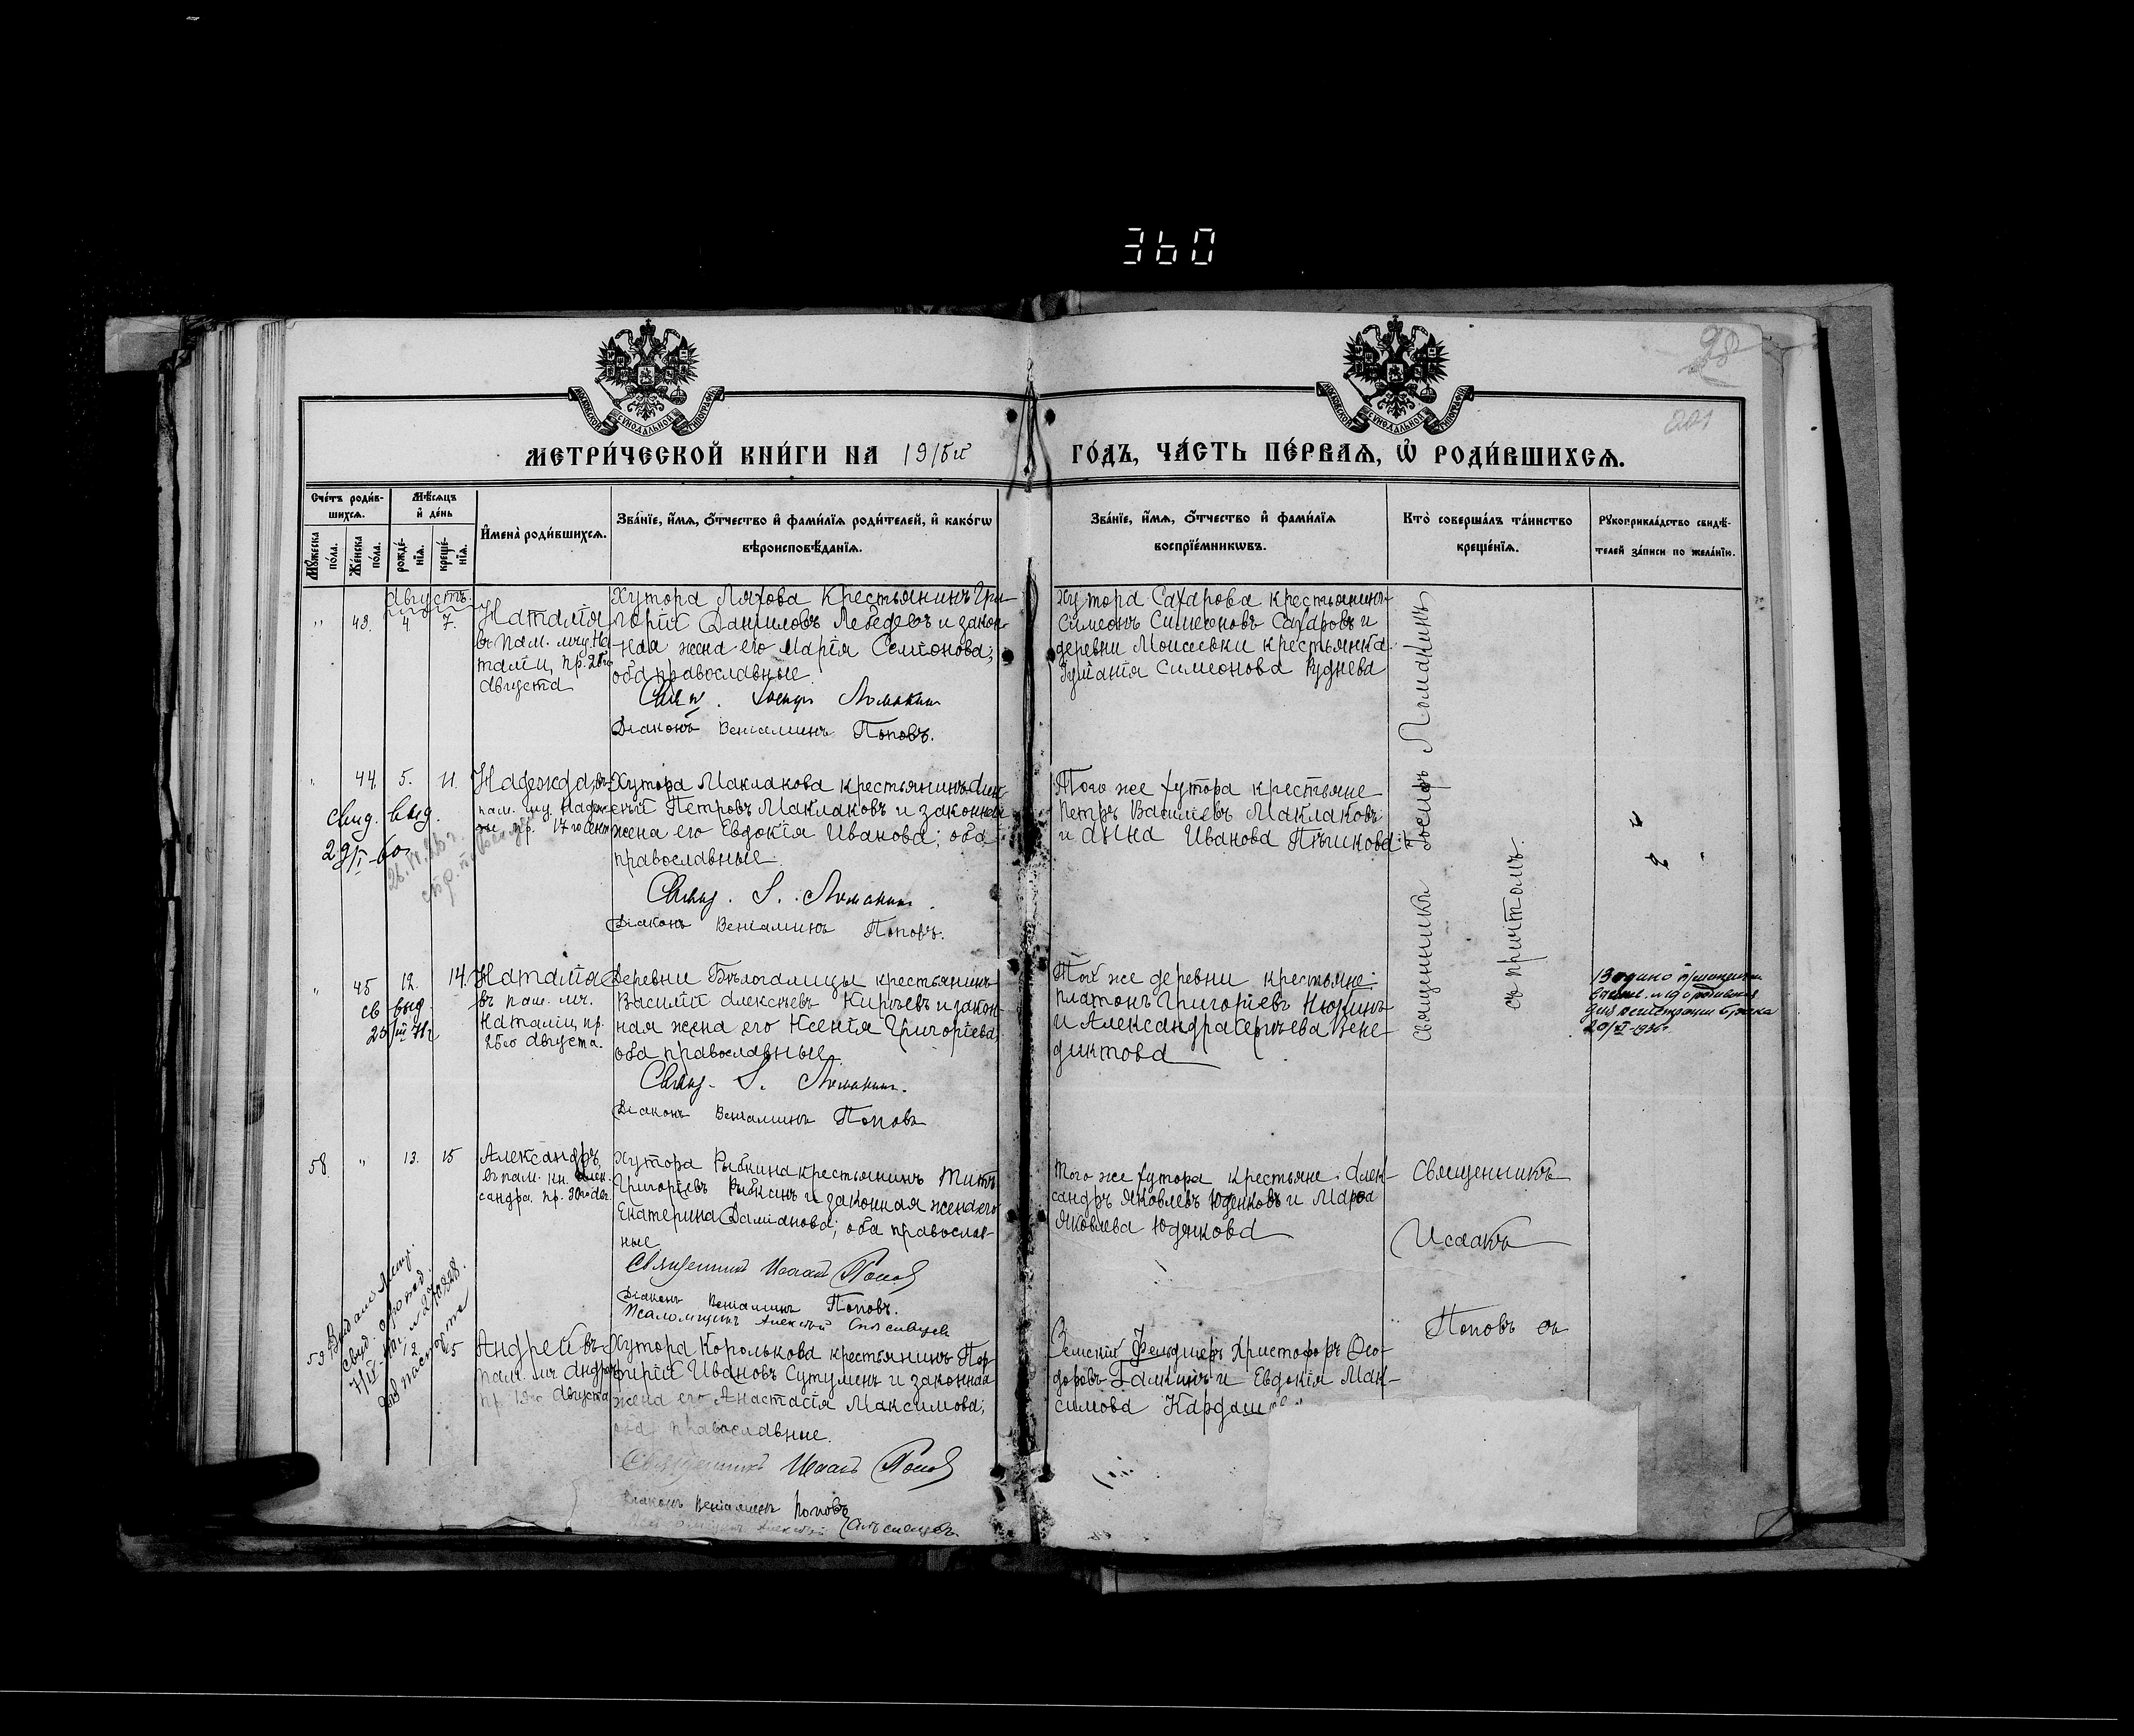 360
МОСКОВСКОЙ СѴНОДАЛЬНОЙ ТИПОГРАФІИ
МОСКОВСКОЙ СѴНОДАЛЬНОЙ ТИПОГРАФІИ
МЕТРИ́ЧЕСКОЙ КНИ́ГИ НА 1915й ГО́ДЪ, ЧА́СТЬ ПЕ́РВАѦ, Ѡ҆ РОДИ́ВШИХСѦ.
Сче́тъ роди́в-
шихсѧ.
Мѣ́сѧцъ
и҆ де́нь
Мꙋ́жеска
по́ла.
Же́нска
по́ла.
рожде́-
нїѧ.
креще́-
нїѧ.
И҆мена̀ роди́вшихсѧ.
Зва́нїе, и҆́мѧ, ѻ҆́тчество и҆ фами́лїѧ роди́телей, и҆ како́гѡ
вѣроисповѣ́данїѧ.
Зва́нїе, и҆́мѧ, ѻ҆́тчество и҆ фами́лїѧ
воспрїе́мникѡвъ.
Кто̀ соверша́лъ та́инство
креще́нїѧ.
Рꙋкоприкла́дство свидѣ́-
телей за́писи по жела́нїю.
Августъ
" 43. 4 7.
Наталія
въ пам. мчц. На
таліи, пр. 26го
Августа
Хутора Ляхова крестьянинъ Гри-
горій Даниловъ Лебедевъ и закон-
ная жена его Марія Семіонова;
оба православные.
Свящ. Іосифъ Ломакинъ
Діаконъ Веніаминъ Поповъ.
Хутора Сахарова крестьянинъ
Симеонъ Симеоновъ Сахаровъ и
деревни Моисеевки крестьянка
Іуліанія Симеонова Руднева
Священникъ Іосифъ Ломакинъ
съ причтомъ.
" 44 5. 11.
свид. выд.
29/I-60
Надежда, въ
пам. мц. Надеж-
ды пр. 17го Сент
Хутора Маклакова крестьянинъ Алек-
сѣй Петровъ Маклаковъ и законная
жена его Евдокія Иванова; оба
православные.
Свящ. І. Ломакинъ
Діаконъ Веніаминъ Поповъ.
Того же хутора крестьяне
Петръ Василіевъ Маклаковъ
и Анна Иванова Пѣшикова
" 45 12. 14.
св выд
Наталія
въ пам. мч.
Наталіи, пр.
26го Августа.
Деревни Бѣлогалицы крестьянинъ
Василій Алексѣевъ Кирѣевъ и закон-
ная жена его Ксенія Григоріева;
оба православные
Свящ. І. Ломакинъ.
Діаконъ Веніаминъ Поповъ
Той же деревни крестьяне:
Платонъ Григоріевъ Кюринъ
и Александра Сергѣева Вене-
диктова
58 " 13. 15
Александръ,
въ пам. кн. Алек-
сандра, пр. 30го Авг.
Хутора Рыбкина крестьянинъ Титъ
Григоріевъ Рыбкинъ и законная жена его
Екатерина Даміанова; оба православ-
ные
Священникъ Исаакъ Поповъ
Діаконъ Веніаминъ Поповъ.
Псаломщикъ Алексѣй
Того же хутора крестьяне: Алек-
сандръ Яковлевъ Юденковъ и Марѳа
Яковлева Юдянкова
Священникъ
Исаакъ
Поповъ съ
59 12 15
свид. о рожд.
для паспорта
Андрей въ
пам. мч. Андрея
пр. 19го Августа
Хутора Королькова крестьянинъ Пор-
фирій Ивановъ Сутуминъ и законная
жена его Анастасія Максимова;
оба православные.
Священникъ Исаакъ Поповъ
Діаконъ Веніаминъ Поповъ
Земскій фельдшеръ Христофоръ Ѳео-
доровъ Галкинъ и Евдокія Мак-
симова